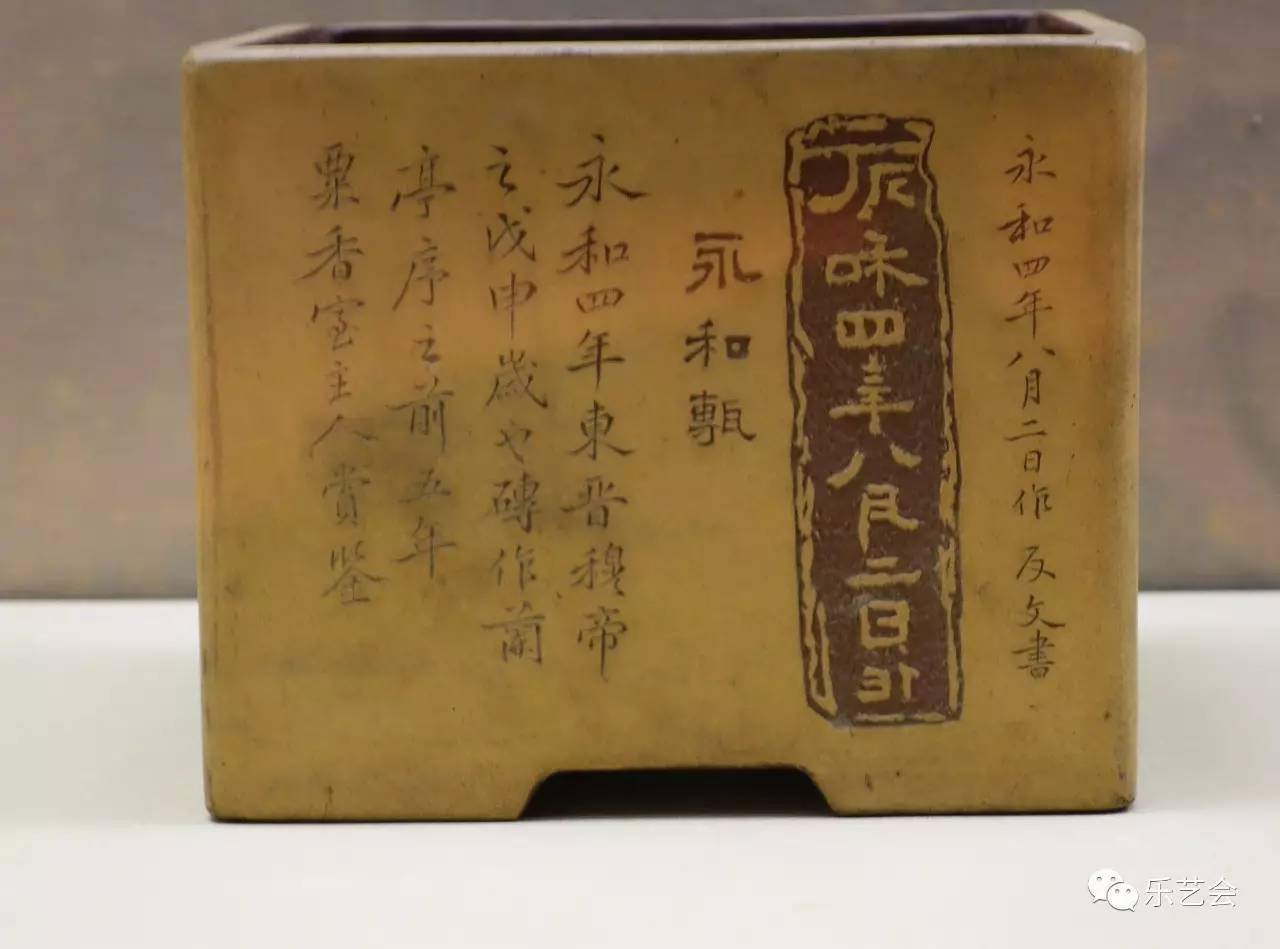 永和四年八月二日作 反文書
永和四年八月二日作
永和甎
永和四年東晋穆帝
之戊申歲也磚作蘭
亭序之前五年
粟香室主人賞鉴
乐艺会